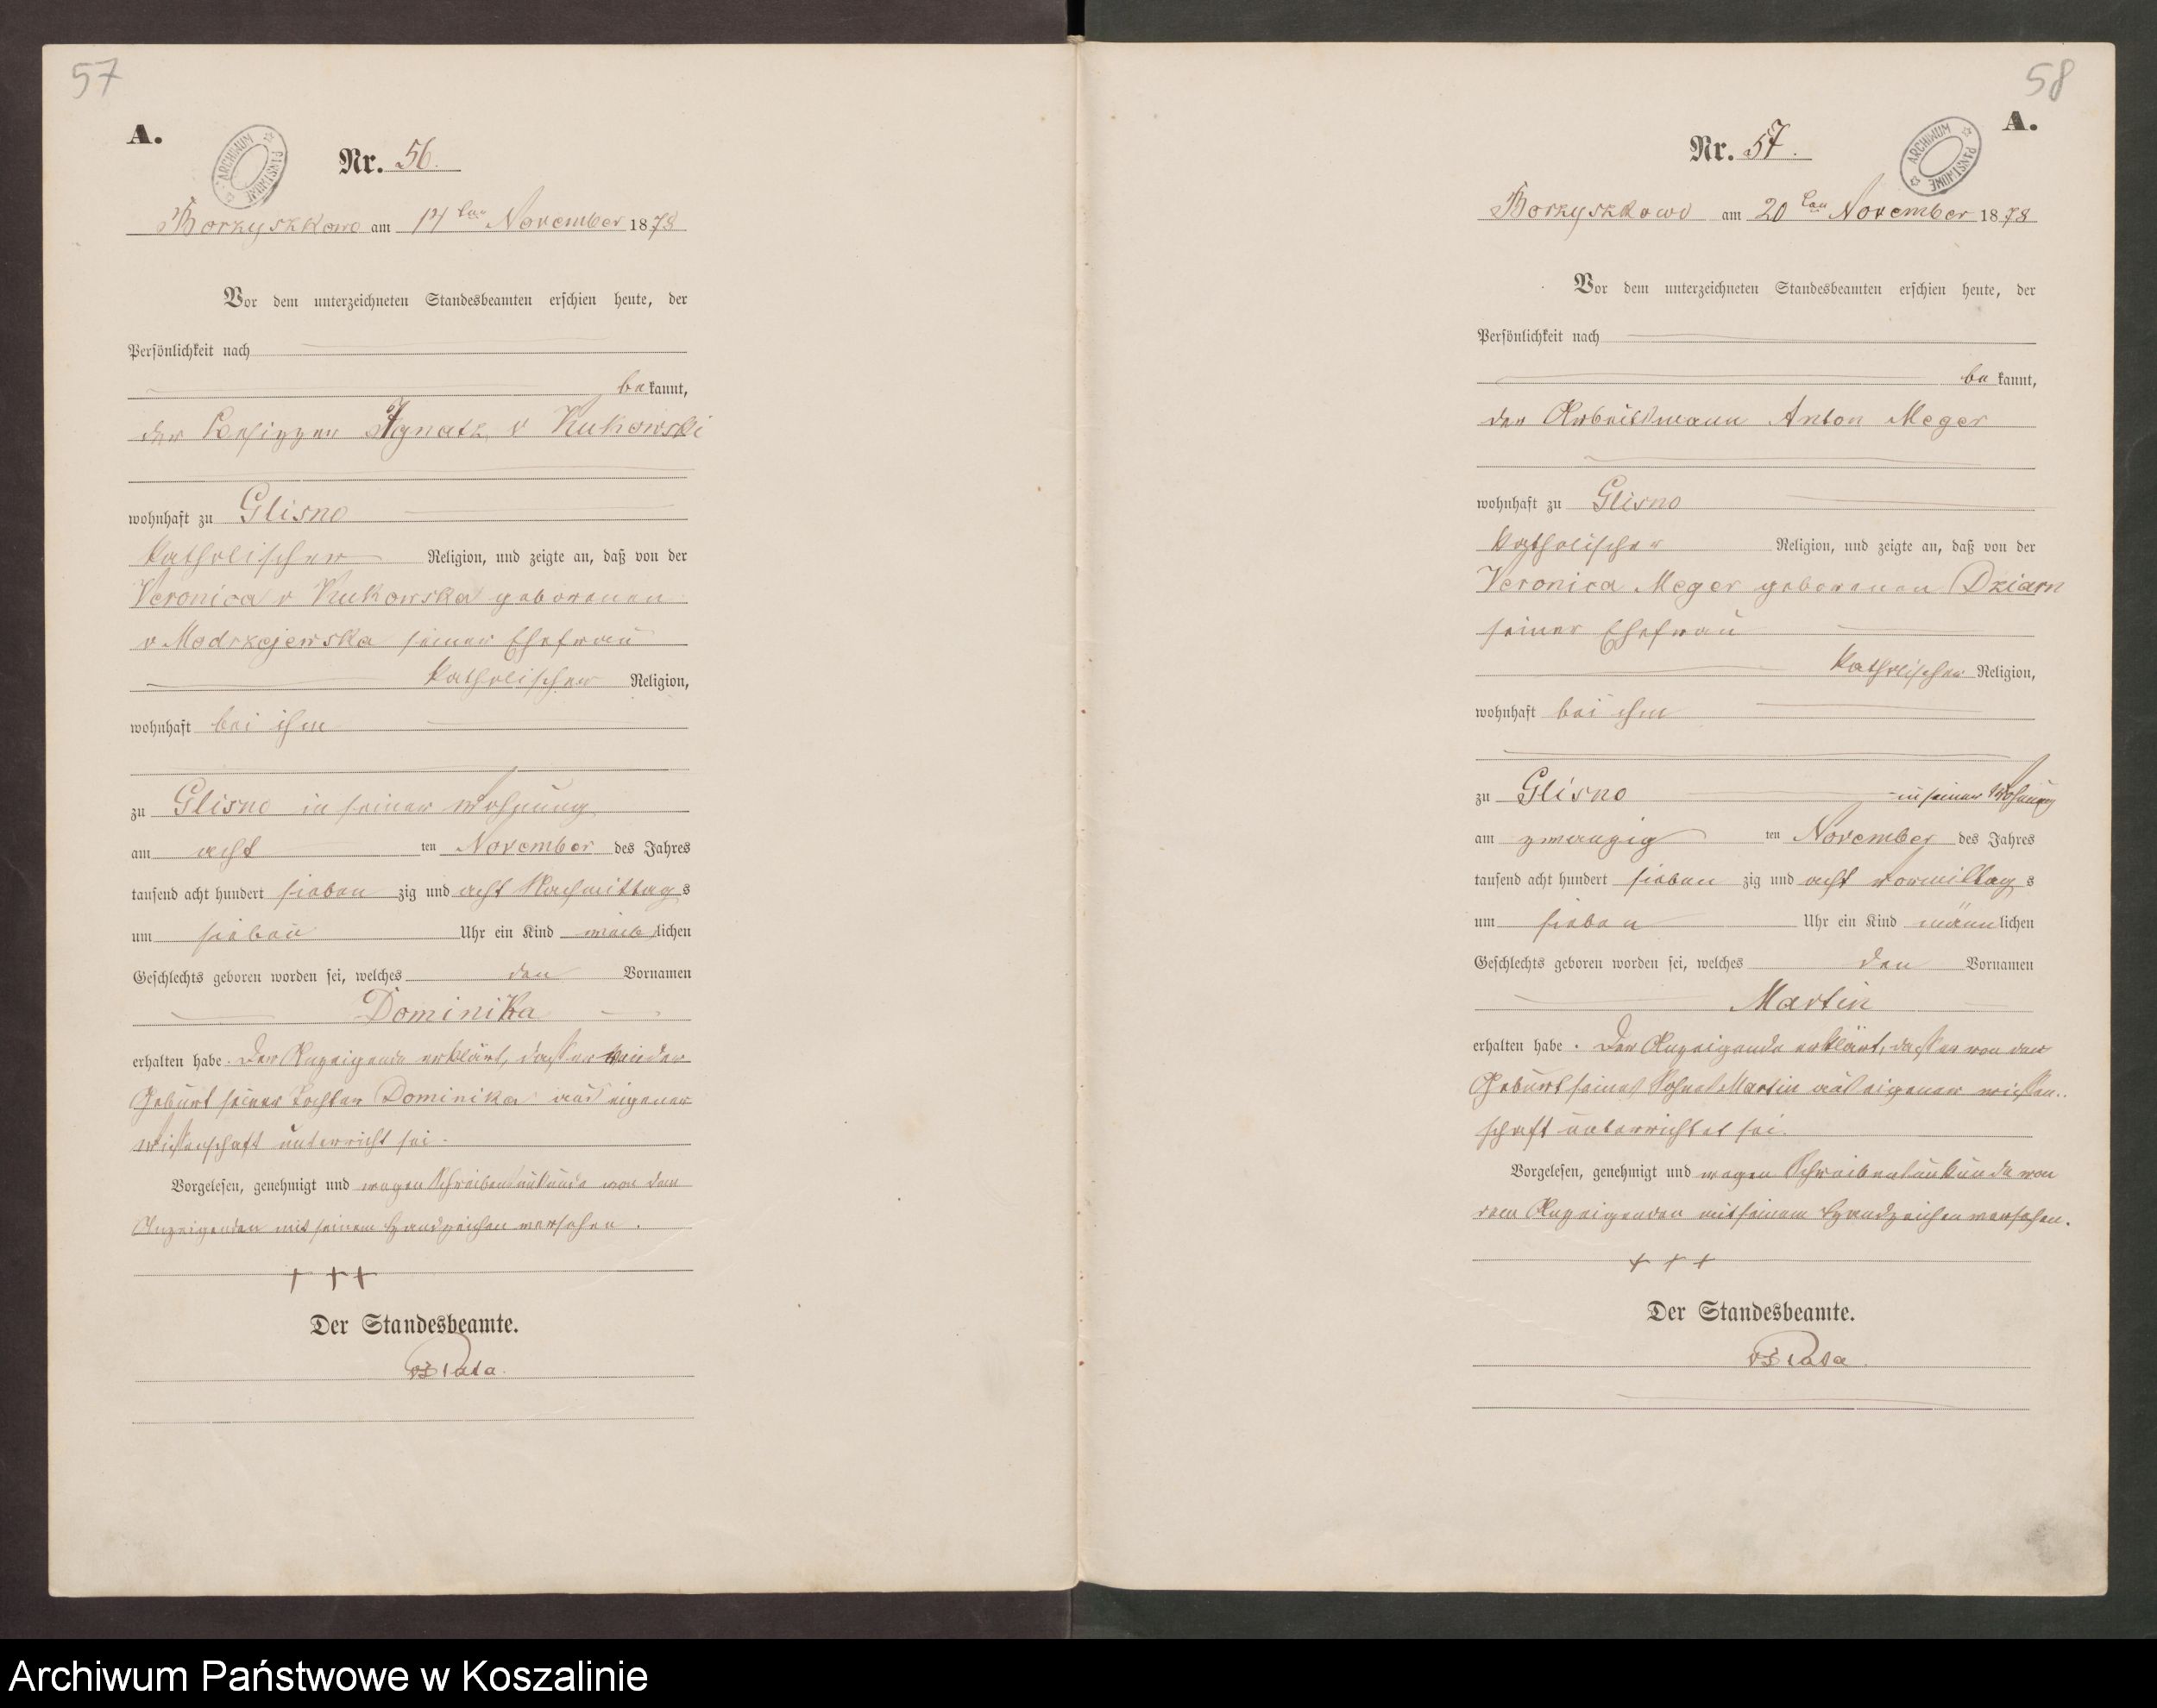 57
A.
ARCHIWUM PAŃSTWOWE
Nr. 56.
Borzyszkowo am 14 ten November 1878
Vor dem unterzeichneten Standesbeamten erschien heute, der
Persönlichkeit nach
bekannt,
der Besitzer Ignatz v Kukowski
wohnhaft zu Glisno
katholischer Religion, und zeigte an, daß von der
Veronica v Kukowska geborenen
v Modrzejewska seiner Ehefrau
katholischer Religion,
wohnhaft bei ihm
zu Glisno in seiner Wohnung
am acht ten November des Jahres
tausend acht hundert sieben zig und acht Nachmittag s
um sieben Uhr ein Kind weib lichen
Geschlechts geboren worden sei, welches den Vornamen
Dominika
erhalten habe. Der Anzeigende erklärt, dass er von der
Geburt seiner Tochter Dominika aus eigener
Wissenschaft unterricht sei.
Vorgelesen, genehmigt und wegen Schreibensunkunde von dem
Anzeigenden mit seinem Handzeichen versehen.
+ ++
Der Standesbeamte.
58
A.
ARCHIWUM PAŃSTWOWE
Nr. 57.
Borzyszkowo am 20 ten November 1878
Vor dem unterzeichneten Standesbeamten erschien heute, der
Persönlichkeit nach
be kannt,
der Arbeitsmann Anton Meger
wohnhaft zu Glisno
katholischer Religion, und zeigte an, daß von der
Veronica Meger geborenen Dziarn
seiner Ehefrau
katholischer Religion,
wohnhaft bei ihm
zu Glisno in seiner Wohnung
am zwanzig ten November des Jahres
tausend acht hundert sieben zig und acht vormittag s
um sieben Uhr ein Kind männ lichen
Geschlechts geboren worden sei, welches den Vornamen
Martin
erhalten habe. Der Anzeigende erklärt, dass er von der
Geburt seines Sohnes Martin aus eigener wissen-
schaft unterrichtet sei.
Vorgelesen, genehmigt und wegen Schreibensunkunde von
dem Anzeigenden mit seinem Handzeichen versehen.
+ + +
Der Standesbeamte.
Archiwum Państwowe w Koszalinie